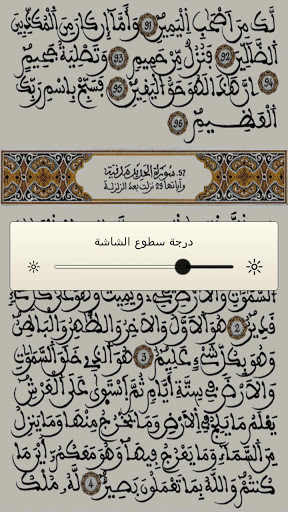 لَّكَ مِنَ اَصْحَٰبِ اِلْيَمِينِ 91 وَأَمَّآ إِن كَانَ مِنَ اَلْمُكَذِّبِينَ
اَلضَّآلِّينَ 92 فَنُزُلٌ مِّنْ حَمِيمٍ 93 وَتَصْلِيَةُ جَحِيمٍ
94 إِنَّ هَٰذَا لَهُوَ حَقُّ اُلْيَقِينِ 95 فَسَبِّحْ بِاسْمِ رَبِّكَ
اَلْعَظِيمِ 96
57 سورة الحديد مدنية
وآياتها 29 نزلت بعد الزلزلة
درجة سطوع الشاشة
اِلسَّمَٰوَٰتِ وَالَارْضِ يُحْيِۦ وَيُمِيتُ وَهُوَ عَلَىٰ كُلِّ
قَدِيرٌ 2 هُوَ اَلَاوَّلُ وَالَاخِرُ وَالظَّٰهِرُ وَالْبَاطِنُ
وَهُوَ بِكُلِّ شَےْءٍ عَلِيمٌ 3 هُوَ اَلذِے خَلَقَ اَلسَّمَٰوَٰتِ
وَالَارْضَ فِے سِتَّةِ أَيَّامٍ ثُمَّ اَسْتَوَىٰ عَلَى اَلْعَرْشِ
يَعْلَمُ مَا يَلِجُ فِے اِلَارْضِ وَمَا يَخْرُجُ مِنْهَا وَمَا يَنزِلُ
مِنَ اَلسَّمَآءِ وَمَا يَعْرُجُ فِيهَا وَهُوَ مَعَكُمُۥٓ أَيْنَ مَا
كُنتُمْ وَاللَّهُ بِمَا تَعْمَلُونَ بَصِيرٌ 4 لَّهُۥ مُلْكُ